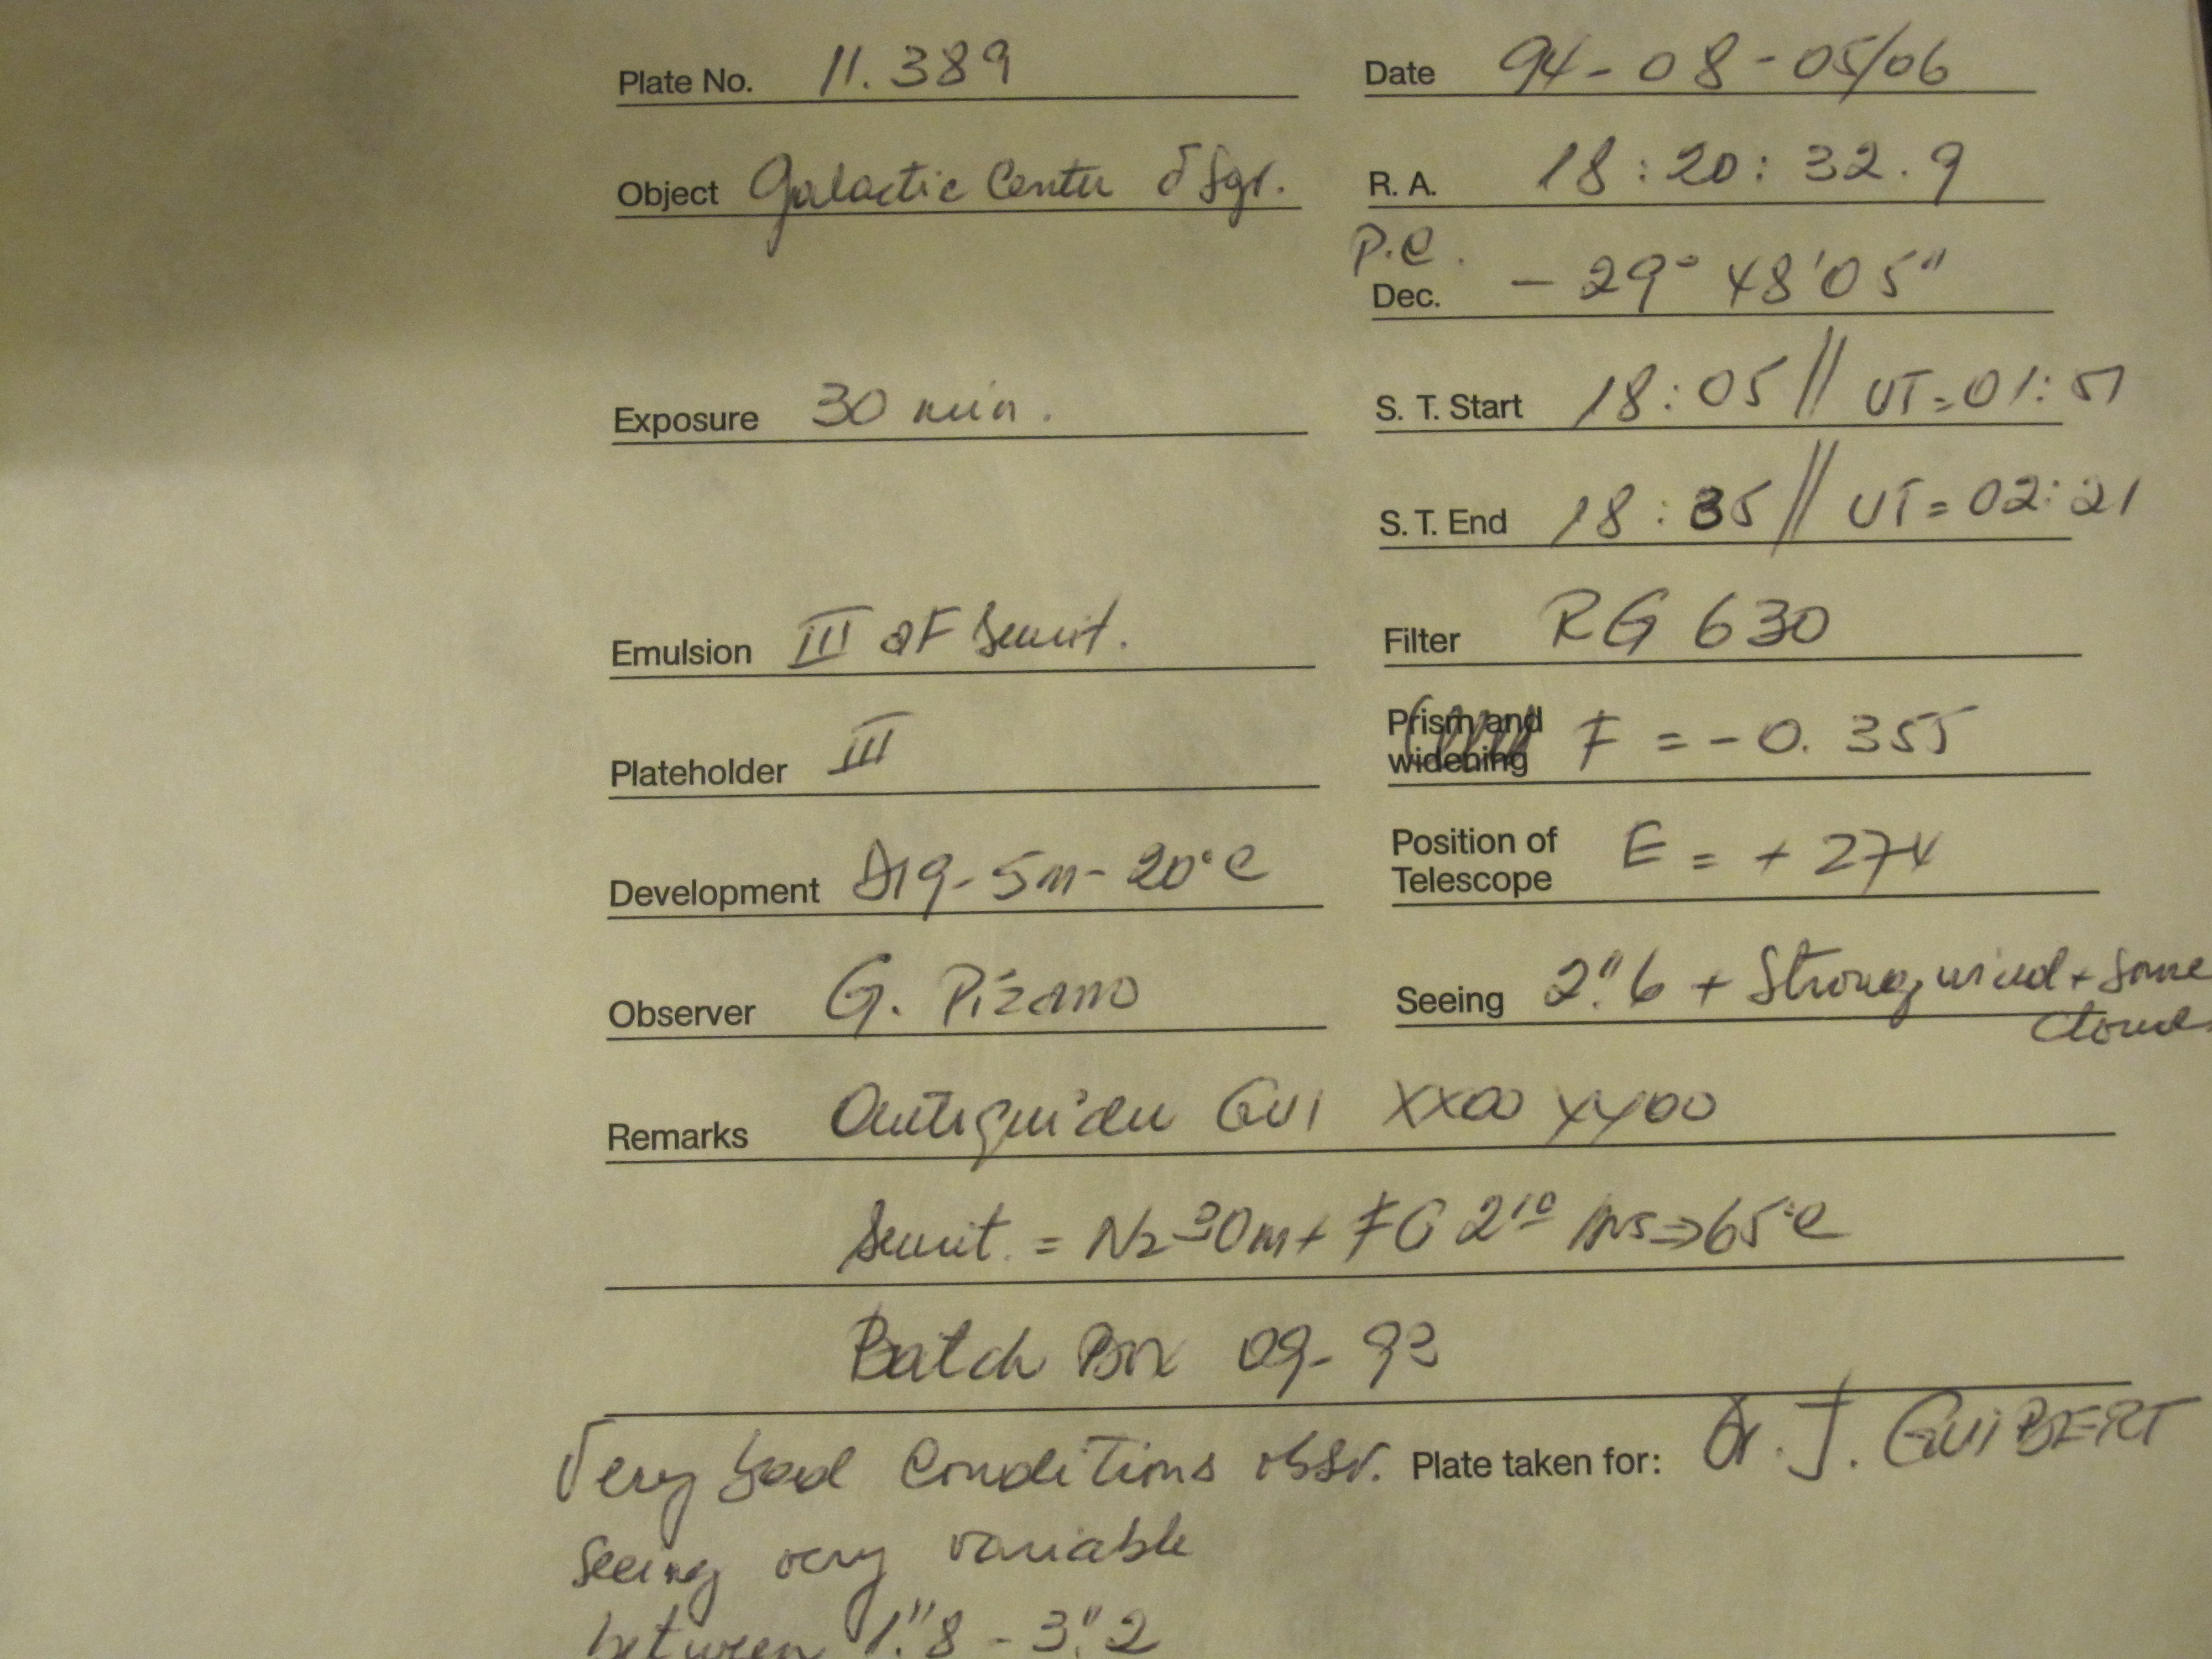 Plate No. 11.389 Date 94-08-05/06
Object Galactic Center δ Sgr. R. A. 18:20:32.9
P.C.
Dec. -29° 48'05"
Exposure 30 min. S. T. Start 18:05 // UT=01:51
S. T. End 18:35 // UT=02:21
Emulsion III aF Sensit. Filter RG 630
Plateholder III Prism and widening F = -0.355
Development D19-5m-20°C Position of Telescope E = +274
Observer G. Pizarro Seeing 2".6 + Strong wind + some
clouds
Remarks Autoguider GUI XX00 YY00
Sensit. = N2 30m + FG 2 10 hrs ⇒ 65°C
Batch Box 09-93
Very bad Conditions obsv. Plate taken for: Dr. J. GUIBERT
Seeing very variable
between 1".8 - 3".2